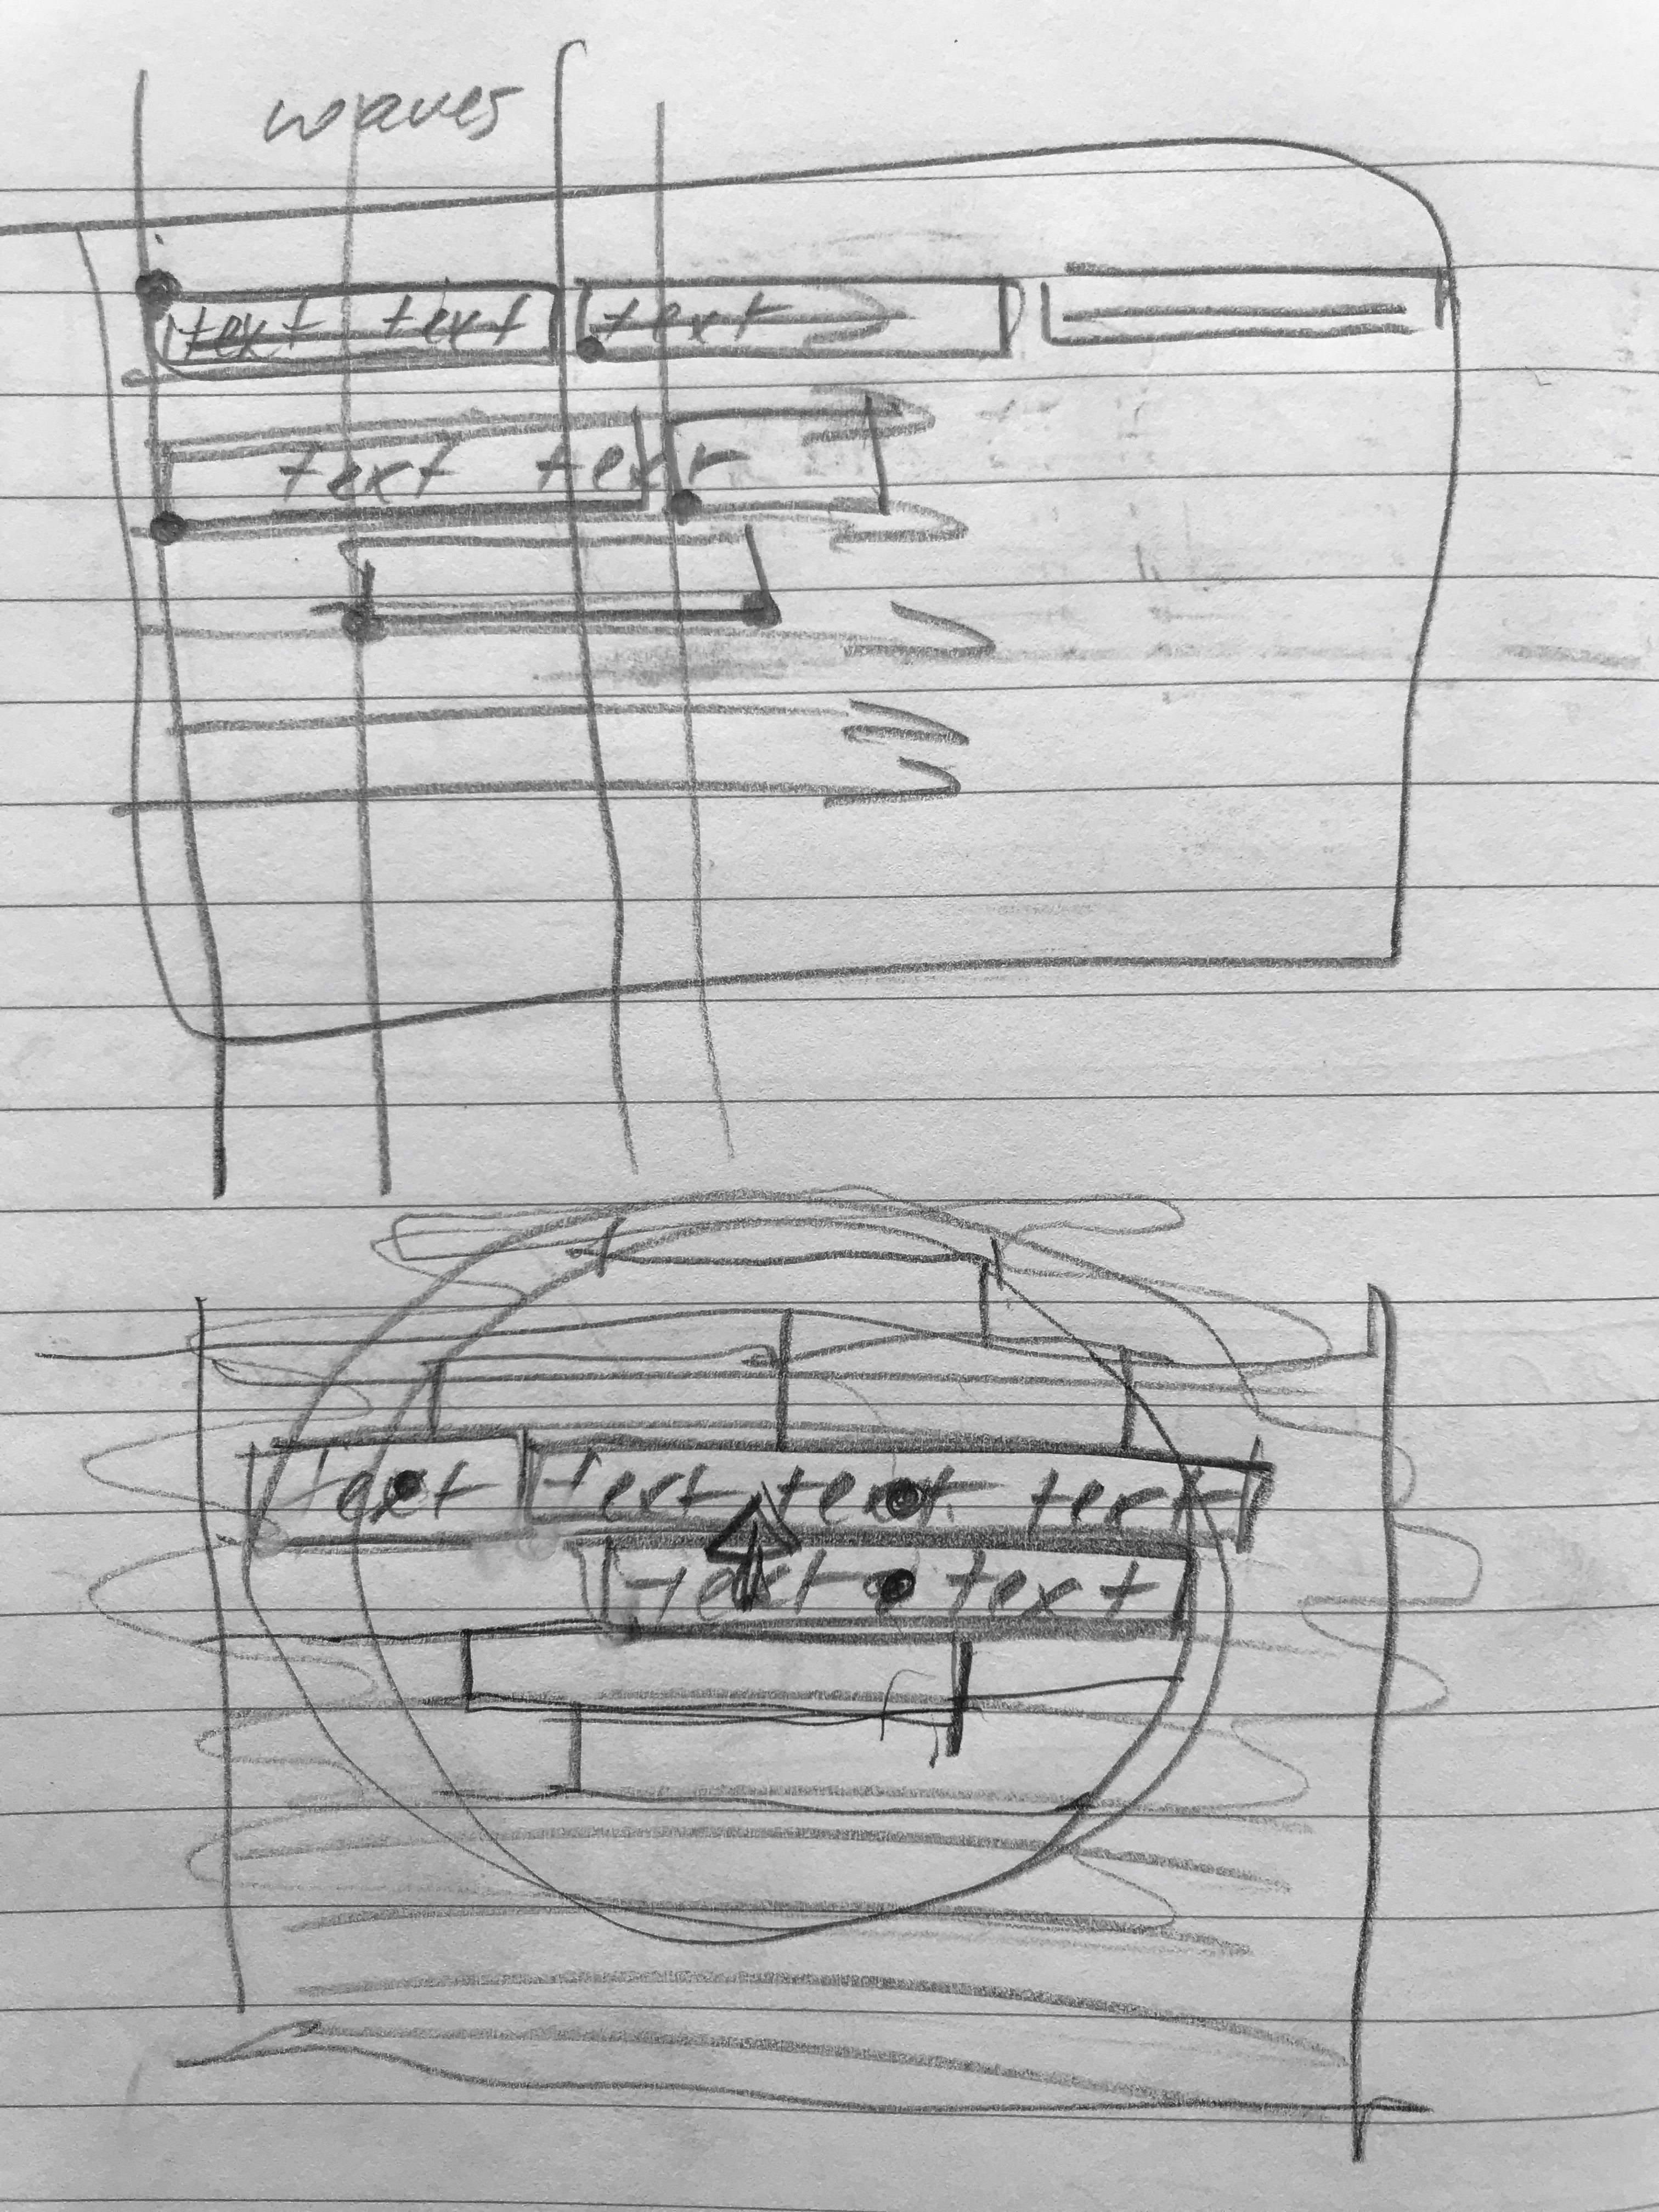 waves
text text text
text text
text text text text
text text